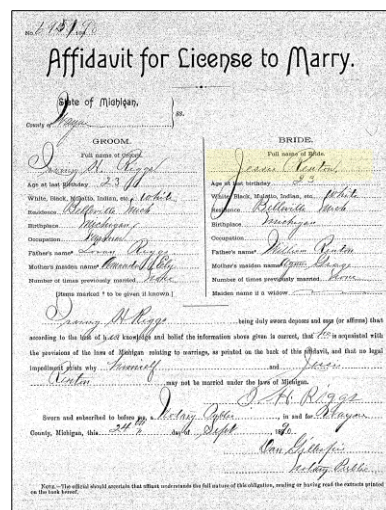 Affidavit for License to Marry.
State of Michigan,
County of Wayne
ss.
GROOM.
Full name of Groom.
Irving H. Riggs
Age at last Birthday 23
White, Black, Mulatto, Indian, etc., White
Residence Belleville Mich
Birthplace Michigan
Occupation
Father's name* Riggs
Mother's maiden name*
Number of times previously married,
[Items marked * to be given if known]
BRIDE.
Full name of Bride.
Jessie Renton
Age at last birthday 23
White, Black, Mulatto, Indian, etc., White
Residence Belleville Mich
Birthplace Michigan
Occupation
Father's name* William Renton
Mother's maiden name*
Number of times previously married, None
Maiden name if a widow
Irving H Riggs being duly sworn deposes and says (or affirms) that
according to the best of his knowledge and belief the information above given is correct, that he is acquainted with
the provisions of the laws of Michigan relating to marriage, as printed on the back of this affidavit, and that no legal
impediment exists why himself and Jessie
Renton may not be married under the laws of Michigan.
I H Riggs
Sworn and subscribed to before me, a Notary Public in and for Wayne
County, Michigan, this 24th day of Sept 1890.
Notary Public
NOTE.—The official should ascertain that affiant understands the full nature of this obligation, reading or having read the extracts printed
on the back hereof.